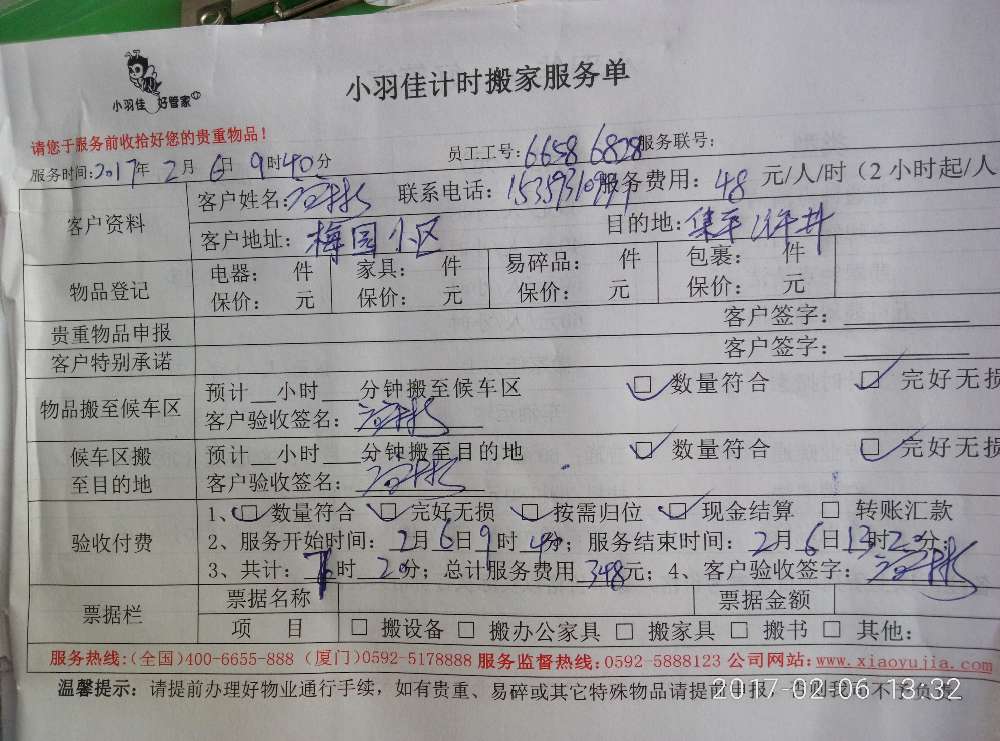 小羽佳 好管家
小羽佳计时搬家服务单
请您于服务前收拾好您的贵重物品！
服务时间:2017年 2月 6日 9时40分 员工工号: 6658 6828 服务联号:
客户资料
客户姓名: 联系电话: 服务费用: 48 元/人/时(2小时起/人
客户地址: 梅园小区 目的地: 集平
物品登记
电器: 件 家具: 件 易碎品: 件 包裹: 件
保价: 元 保价: 元 保价: 元 保价: 元
贵重物品申报 客户签字:
客户特别承诺 客户签字:
物品搬至候车区
预计__小时___分钟搬至候车区 □ 数量符合 □ 完好无损
客户验收签名:
候车区搬至目的地
预计__小时___分钟搬至目的地 □ 数量符合 □ 完好无损
客户验收签名:
验收付费
1、□ 数量符合 □ 完好无损 □ 按需归位 □ 现金结算 □ 转账汇款
2、服务开始时间: 2月6日9时40分; 服务结束时间: 2月6日13时20分;
3、共计: 时 20分; 总计服务费用 348元; 4、客户验收签字:
票据栏
票据名称 票据金额
项 目 □ 搬设备 □ 搬办公家具 □ 搬家具 □ 搬书 □ 其他:
服务热线:(全国)400-6655-888 (厦门)0592-5178888 服务监督热线: 0592-5888123 公司网站: www.xiaoyujia.com
温馨提示: 请提前办理好物业通行手续, 如有贵重、易碎或其它特殊物品请提前申报, 否则我司不予负责
2017-02-06 13:32